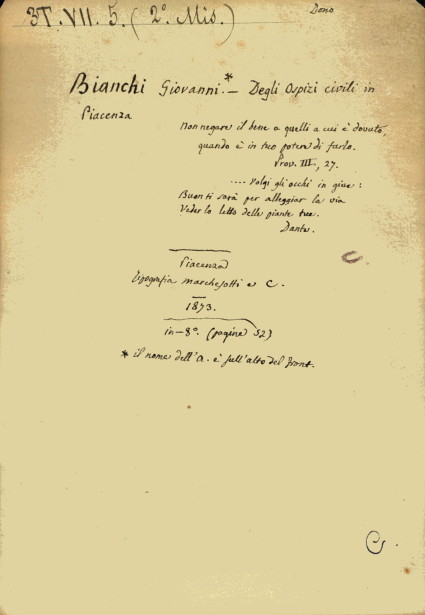 3T.VII.5.(2º. Mis.)
Dono
Bianchi Giovanni.* — Degli Ospizi civili in
Piacenza
Non negare il bene a quelli a cui è dovuto,
quando è in tuo potere di farlo.
Prov. III, 27.
.... Volgi gli occhi in giue:
Buon ti sarà per alleggiar la via
Veder lo letto delle piante tue.
Dante.
Piacenza
Tipografia Marchesotti e C.
1873.
in-8º. (pagine 52)
* il nome dell'A. è sull'alto del front.